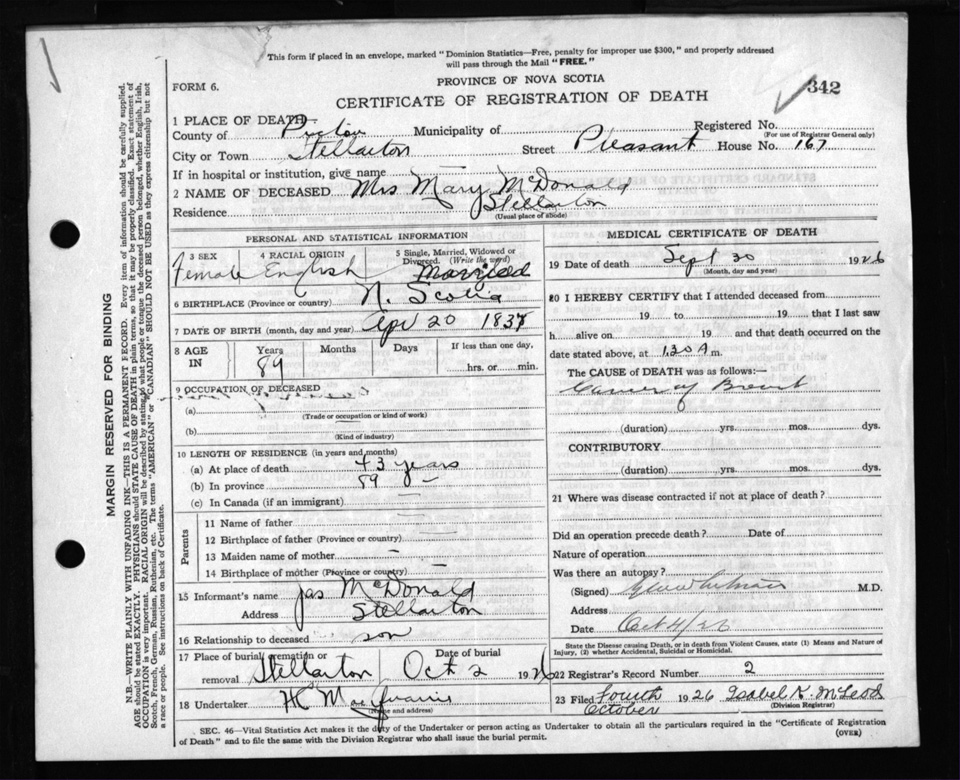 This form if placed in an envelope, marked "Dominion Statistics—Free, penalty for improper use $300," and properly addressed
will pass through the Mail "FREE."
FORM 6.
PROVINCE OF NOVA SCOTIA
342
CERTIFICATE OF REGISTRATION OF DEATH
1 PLACE OF DEATH
Registered No.
(For use of Registrar General only)
County of Pictou Municipality of
City or Town Stellarton Street Pleasant House No. 167
If in hospital or institution, give name
2 NAME OF DECEASED Mrs Mary McDonald
Residence Stellarton
(Usual place of abode)
PERSONAL AND STATISTICAL INFORMATION
3 SEX 4 RACIAL ORIGIN 5 Single, Married, Widowed or Divorced. (Write the word)
Female English Married
6 BIRTHPLACE (Province or country) N. Scotia
7 DATE OF BIRTH (month, day and year) Apr 20 1837
8 AGE IN Years Months Days If less than one day,
89 hrs. or min.
9 OCCUPATION OF DECEASED
(a)
(Trade or occupation or kind of work)
(b)
(Kind of industry)
10 LENGTH OF RESIDENCE (in years and months)
(a) At place of death 43 years
(b) In province 89 —
(c) In Canada (if an immigrant)
Parents
11 Name of father
12 Birthplace of father (Province or country)
13 Maiden name of mother
14 Birthplace of mother (Province or country)
15 Informant's name Jas McDonald
Address Stellarton
16 Relationship to deceased son
17 Place of burial, cremation or removal Stellarton Date of burial Oct 2 1926
18 Undertaker H
(Name and address)
MEDICAL CERTIFICATE OF DEATH
19 Date of death Sept 30 1926
(Month, day and year)
20 I HEREBY CERTIFY that I attended deceased from
19 to 19 that I last saw
h alive on 19 and that death occurred on the
date stated above, at 1.30 A m.
The CAUSE of DEATH was as follows:—
Cancer of Breast
(duration) yrs. mos. dys.
CONTRIBUTORY
(duration) yrs. mos. dys.
21 Where was disease contracted if not at place of death?
Did an operation precede death? Date of
Nature of operation
Was there an autopsy?
(Signed) M.D.
Address
Date Oct 4/26
State the Disease causing Death, or in death from Violent Causes, state (1) Means and Nature of
Injury, (2) whether Accidental, Suicidal or Homicidal.
22 Registrar's Record Number 2
23 Filed Fourth October 1926 Isabel K. McLeod
(Division Registrar)
SEC. 46—Vital Statistics Act makes it the duty of the Undertaker or person acting as Undertaker to obtain all the particulars required in the "Certificate of Registration
of Death" and to file the same with the Division Registrar who shall issue the burial permit.
(OVER)
MARGIN RESERVED FOR BINDING
N.B.—WRITE PLAINLY WITH UNFADING INK—THIS IS A PERMANENT RECORD. Every item of information should be carefully supplied.
AGE should be stated EXACTLY. PHYSICIANS should STATE CAUSE OF DEATH in plain terms, so that it may be properly classified. Exact statement of
OCCUPATION is very important. RACIAL ORIGIN will be described by stating to what people or tongue the deceased person belonged, whether English, Irish,
Scotch, French, German, Russian, Ruthenian, etc. The terms "AMERICAN" or "CANADIAN" SHOULD NOT BE USED as they express citizenship but not
a race or people. See instructions on back of Certificate.